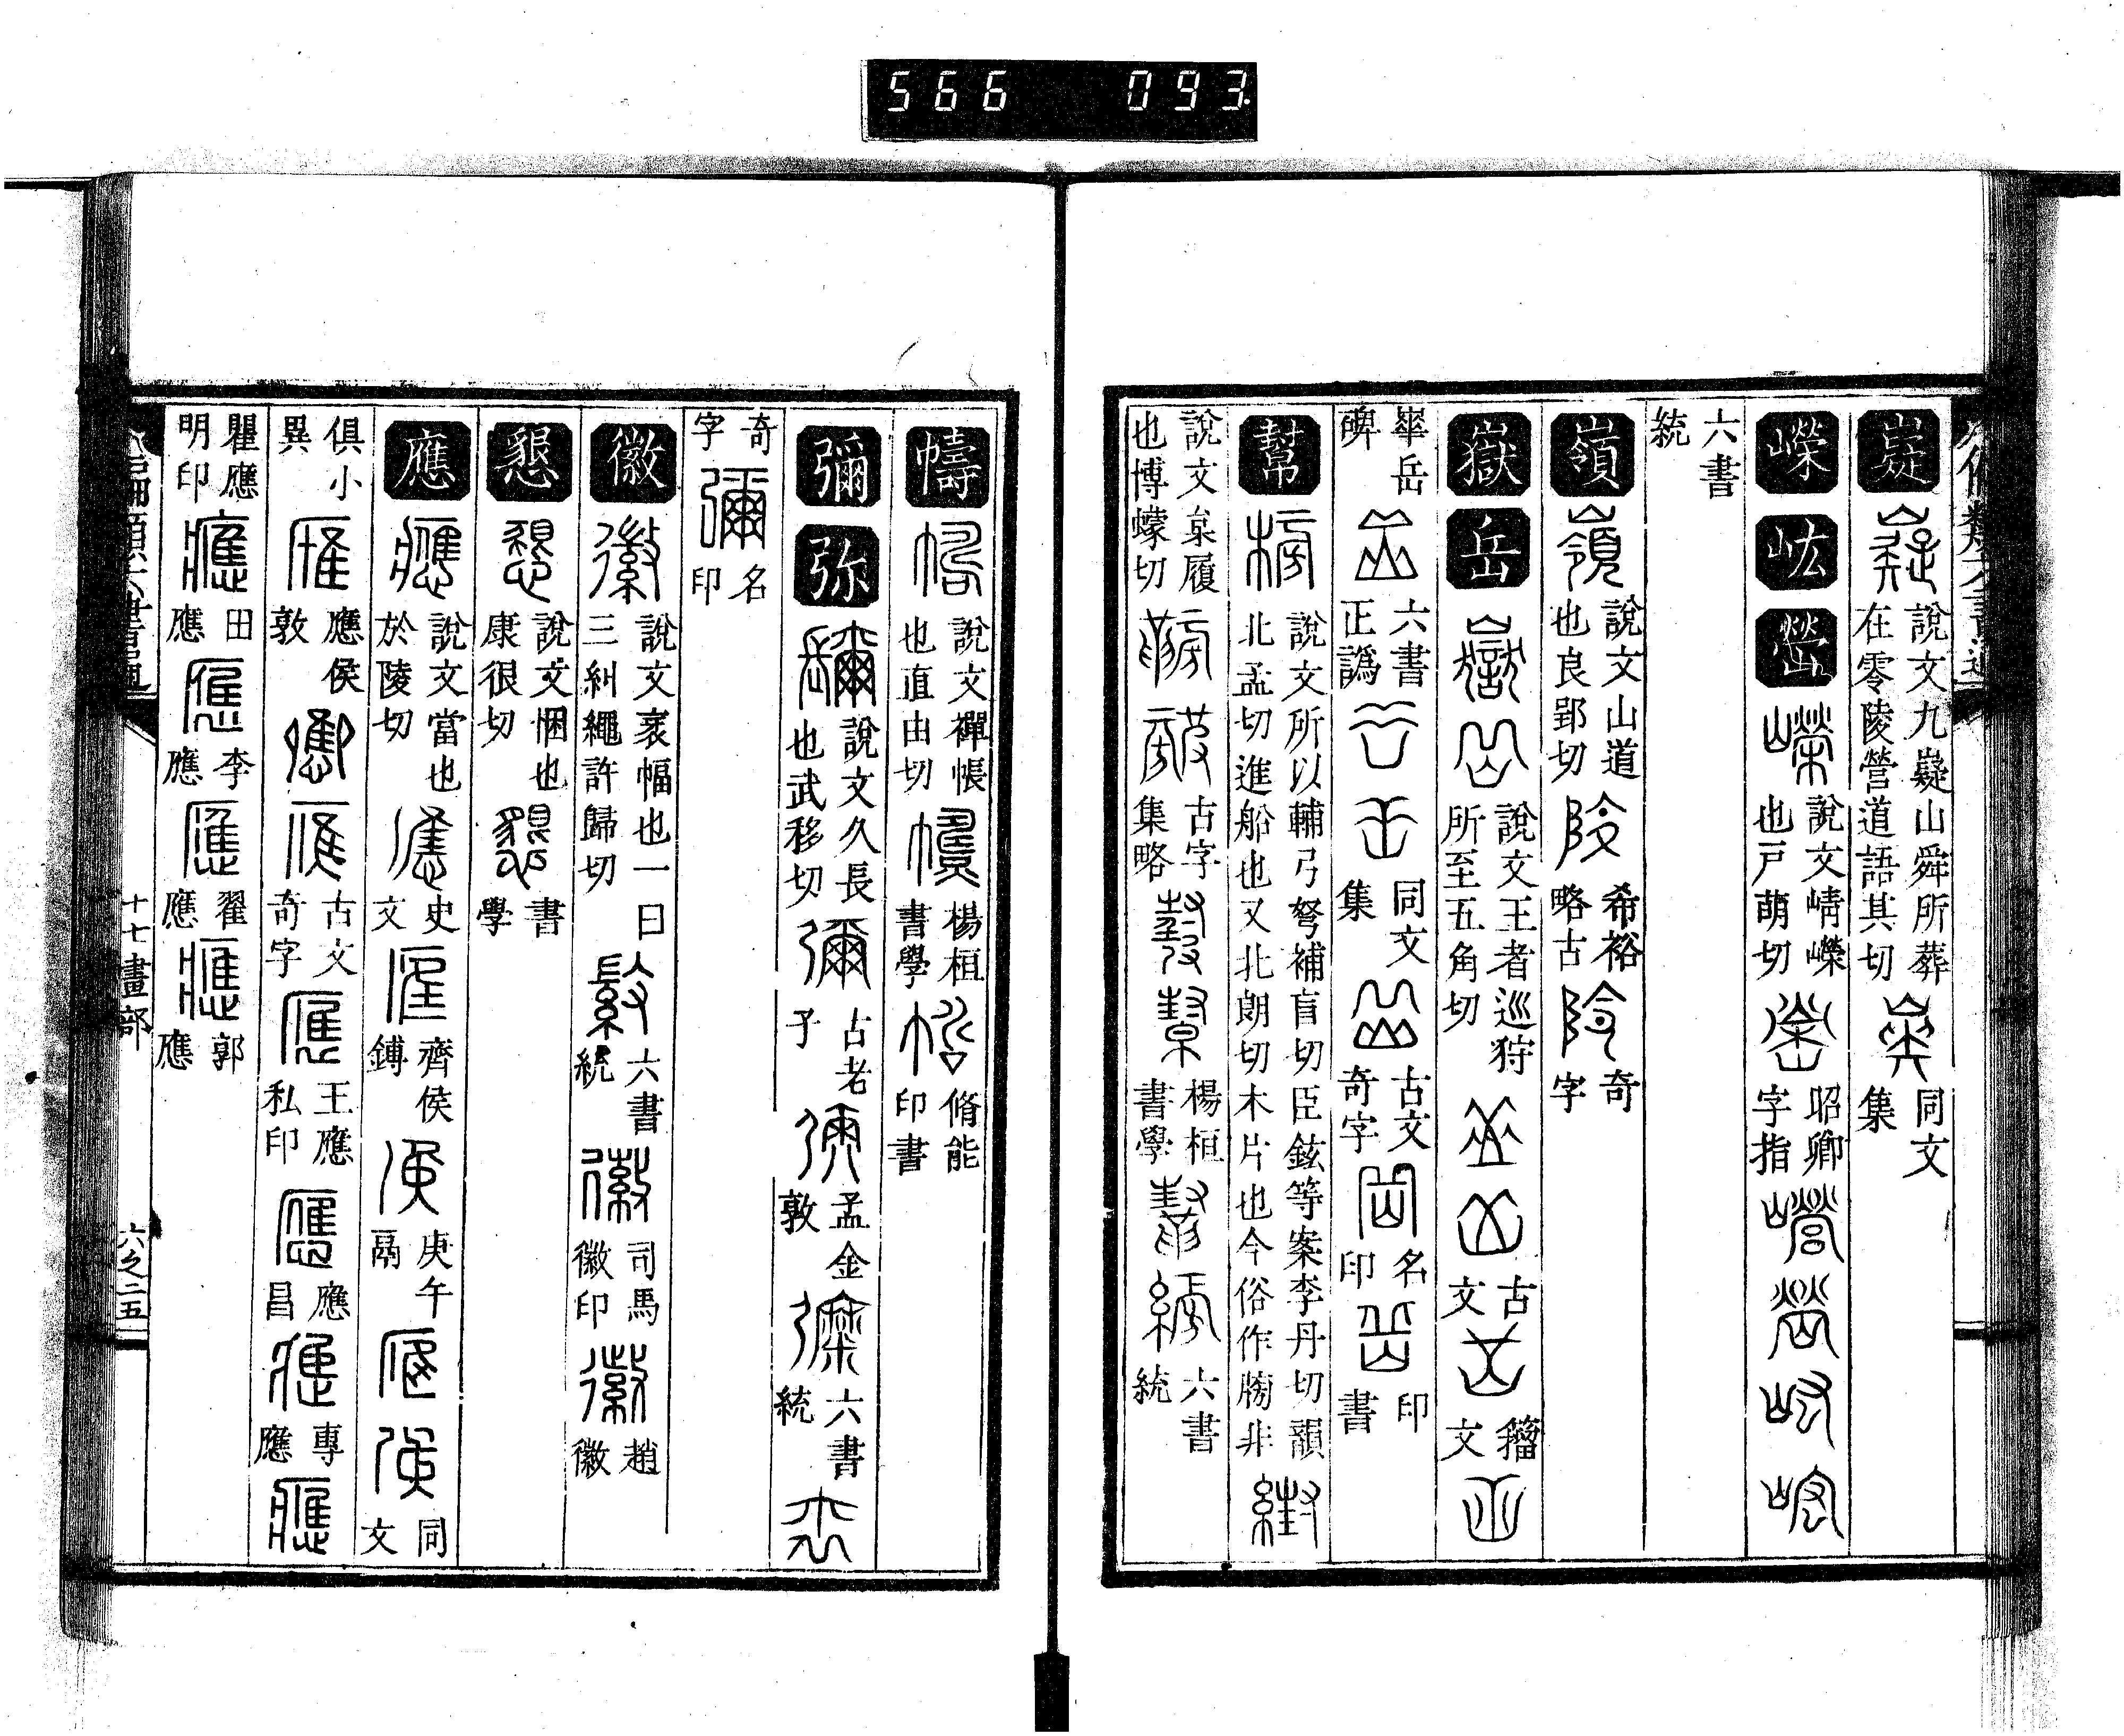 566 093
嶷 說文九嶷山舜所葬在零陵營道語其切 同文集
嶸 㟅 說文崝嶸也戸萌切 昭卿字指
六書統
嶺 說文山道也良郢切 希裕略古 奇字
嶽 岳 說文王者巡狩所至五角切 古文 籀文
華岳碑 六書正譌 同文集 古文奇字 名印 印書
幫 說文所以輔弓弩補盲切臣鉉等案李丹切韻北孟切進船也又北朗切木片也今俗作牓非
說文枲履也博蠓切 古字集略 楊桓書學 六書統
幬 說文襌帳也直由切 楊桓書學 脩能印書
彌 弥 說文久長也武移切 古老子 孟金敦 六書統
奇字 名印
徽 說文衺幅也一曰三糾繩許歸切 六書統 司馬徽印 趙徽
懇 說文悃也康很切 書學
應 說文當也於陵切 史文 齊侯鎛 庚午鬲 同文
俱小異 應侯敦 古文奇字 王應私印 應昌 專應
瞿應明印 田應 李應 翟應 郭應
十七畫部
六之二五